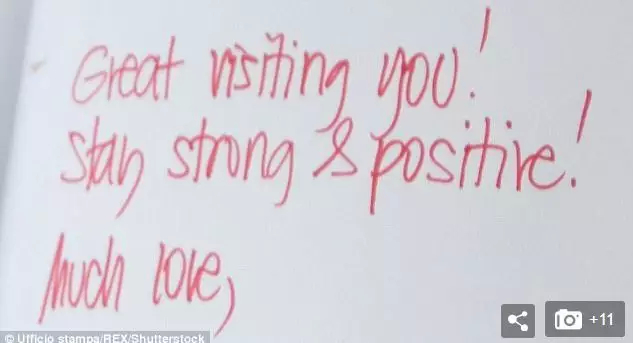 Great visiting you!
Stay strong & positive!
Much love,
+11
© Ufficio stampa/REX/Shutterstock